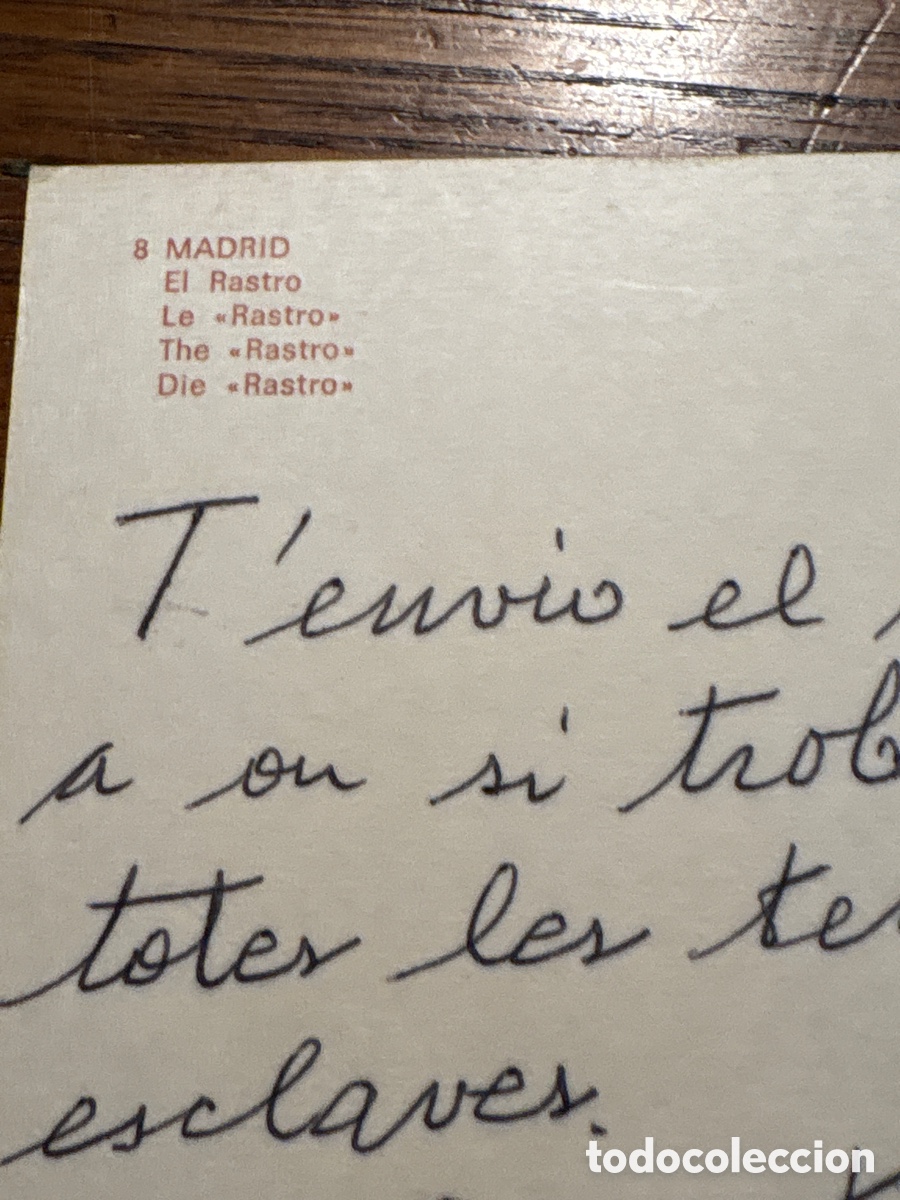 8 MADRID
El Rastro
Le «Rastro»
The «Rastro»
Die «Rastro»
T'envio el
a on si trob
totes les te
esclaves.
todocoleccion